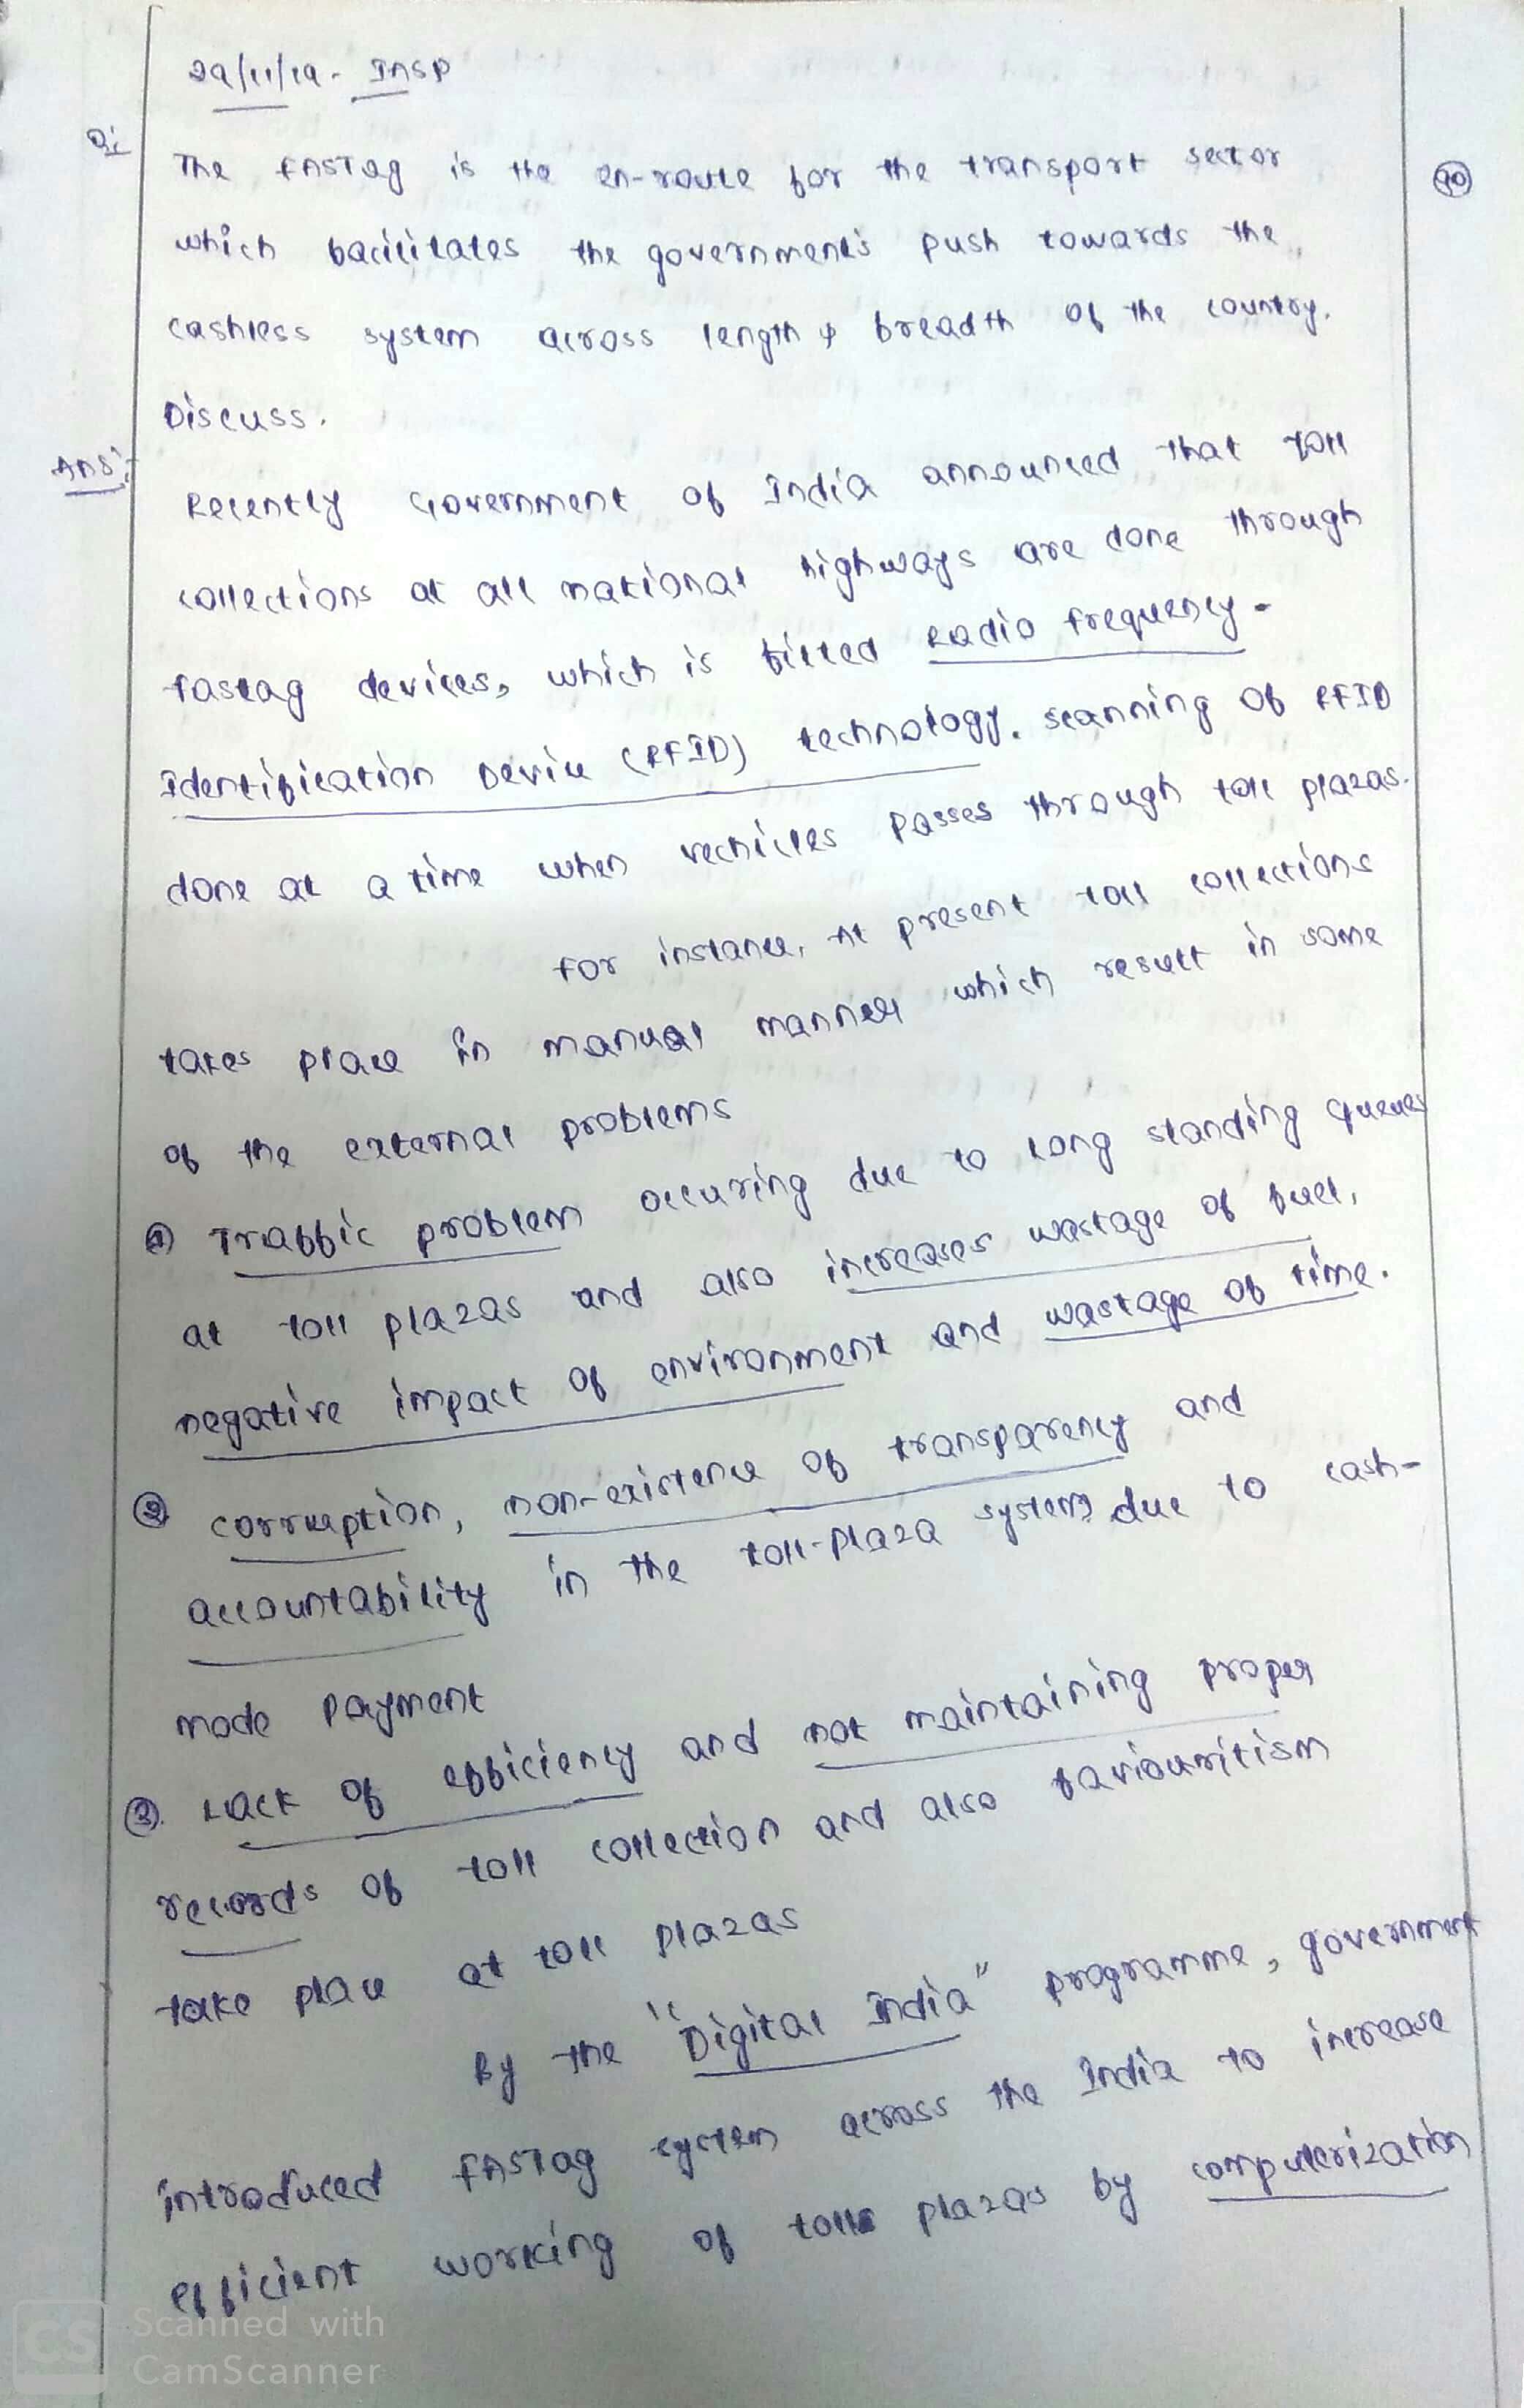 29/11/19 - INSP
Q:
The FASTag is the en-route for the transport sector
which facilitates the government's push towards the
cashless system across length & breadth of the country.
Discuss.
Ans:-
Recently Government of India announced that toll
collections at all national highways are done through
fastag devices, which is fitted Radio frequency-
Identification Device (RFID) technology. scanning of RFID
done at a time when vechicles passes through toll plazas.
For instance, At present toll collections
takes place in manual manner which result in some
of the external problems
① Traffic problem occuring due to long standing queues
at toll plazas and also increases wastage of fuel,
negative impact of environment and wastage of time.
② corruption, non-existence of transparency and
accountability in the toll-plaza system due to cash-
mode payment
③. Lack of efficiency and not maintaining proper
records of toll collection and also faviouritism
take place at toll plazas
By the "Digital India" programme, government
introduced FASTag system across the India to increase
efficient working of tolls plazas by computerization
CS Scanned with
CamScanner